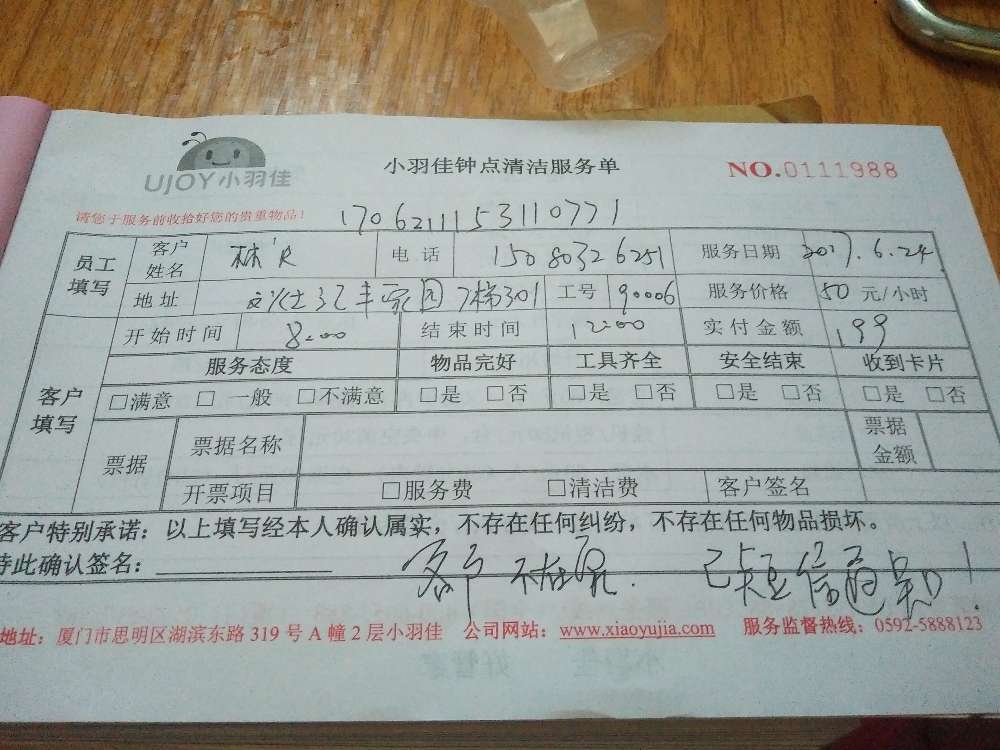 UJOY小羽佳
小羽佳钟点清洁服务单
NO.0111988
请您于服务前收拾好您的贵重物品!
1706211153110771
员工填写 客户姓名 林 电话 15080326251 服务日期 2017.6.24
地址 丰家园7梯301 工号 90006 服务价格 50 元/小时
客户填写 开始时间 8:00 结束时间 12:00 实付金额 199
服务态度 物品完好 工具齐全 安全结束 收到卡片
□满意 □一般 □不满意 □是 □否 □是 □否 □是 □否 □是 □否
票据 票据名称 票据金额
开票项目 □服务费 □清洁费 客户签名
客户特别承诺：以上填写经本人确认属实，不存在任何纠纷，不存在任何物品损坏。
特此确认签名： 客户不在家. 已短信通知!
地址：厦门市思明区湖滨东路 319 号 A 幢 2 层小羽佳 公司网站：www.xiaoyujia.com 服务监督热线：0592-5888123